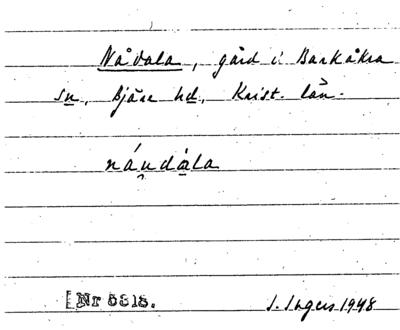 Nådala, gård i Barkåkra
sn, Bjäre hd, Krist. län.
náu̯dàla
[Nr 5815.
I. Ingers 1948